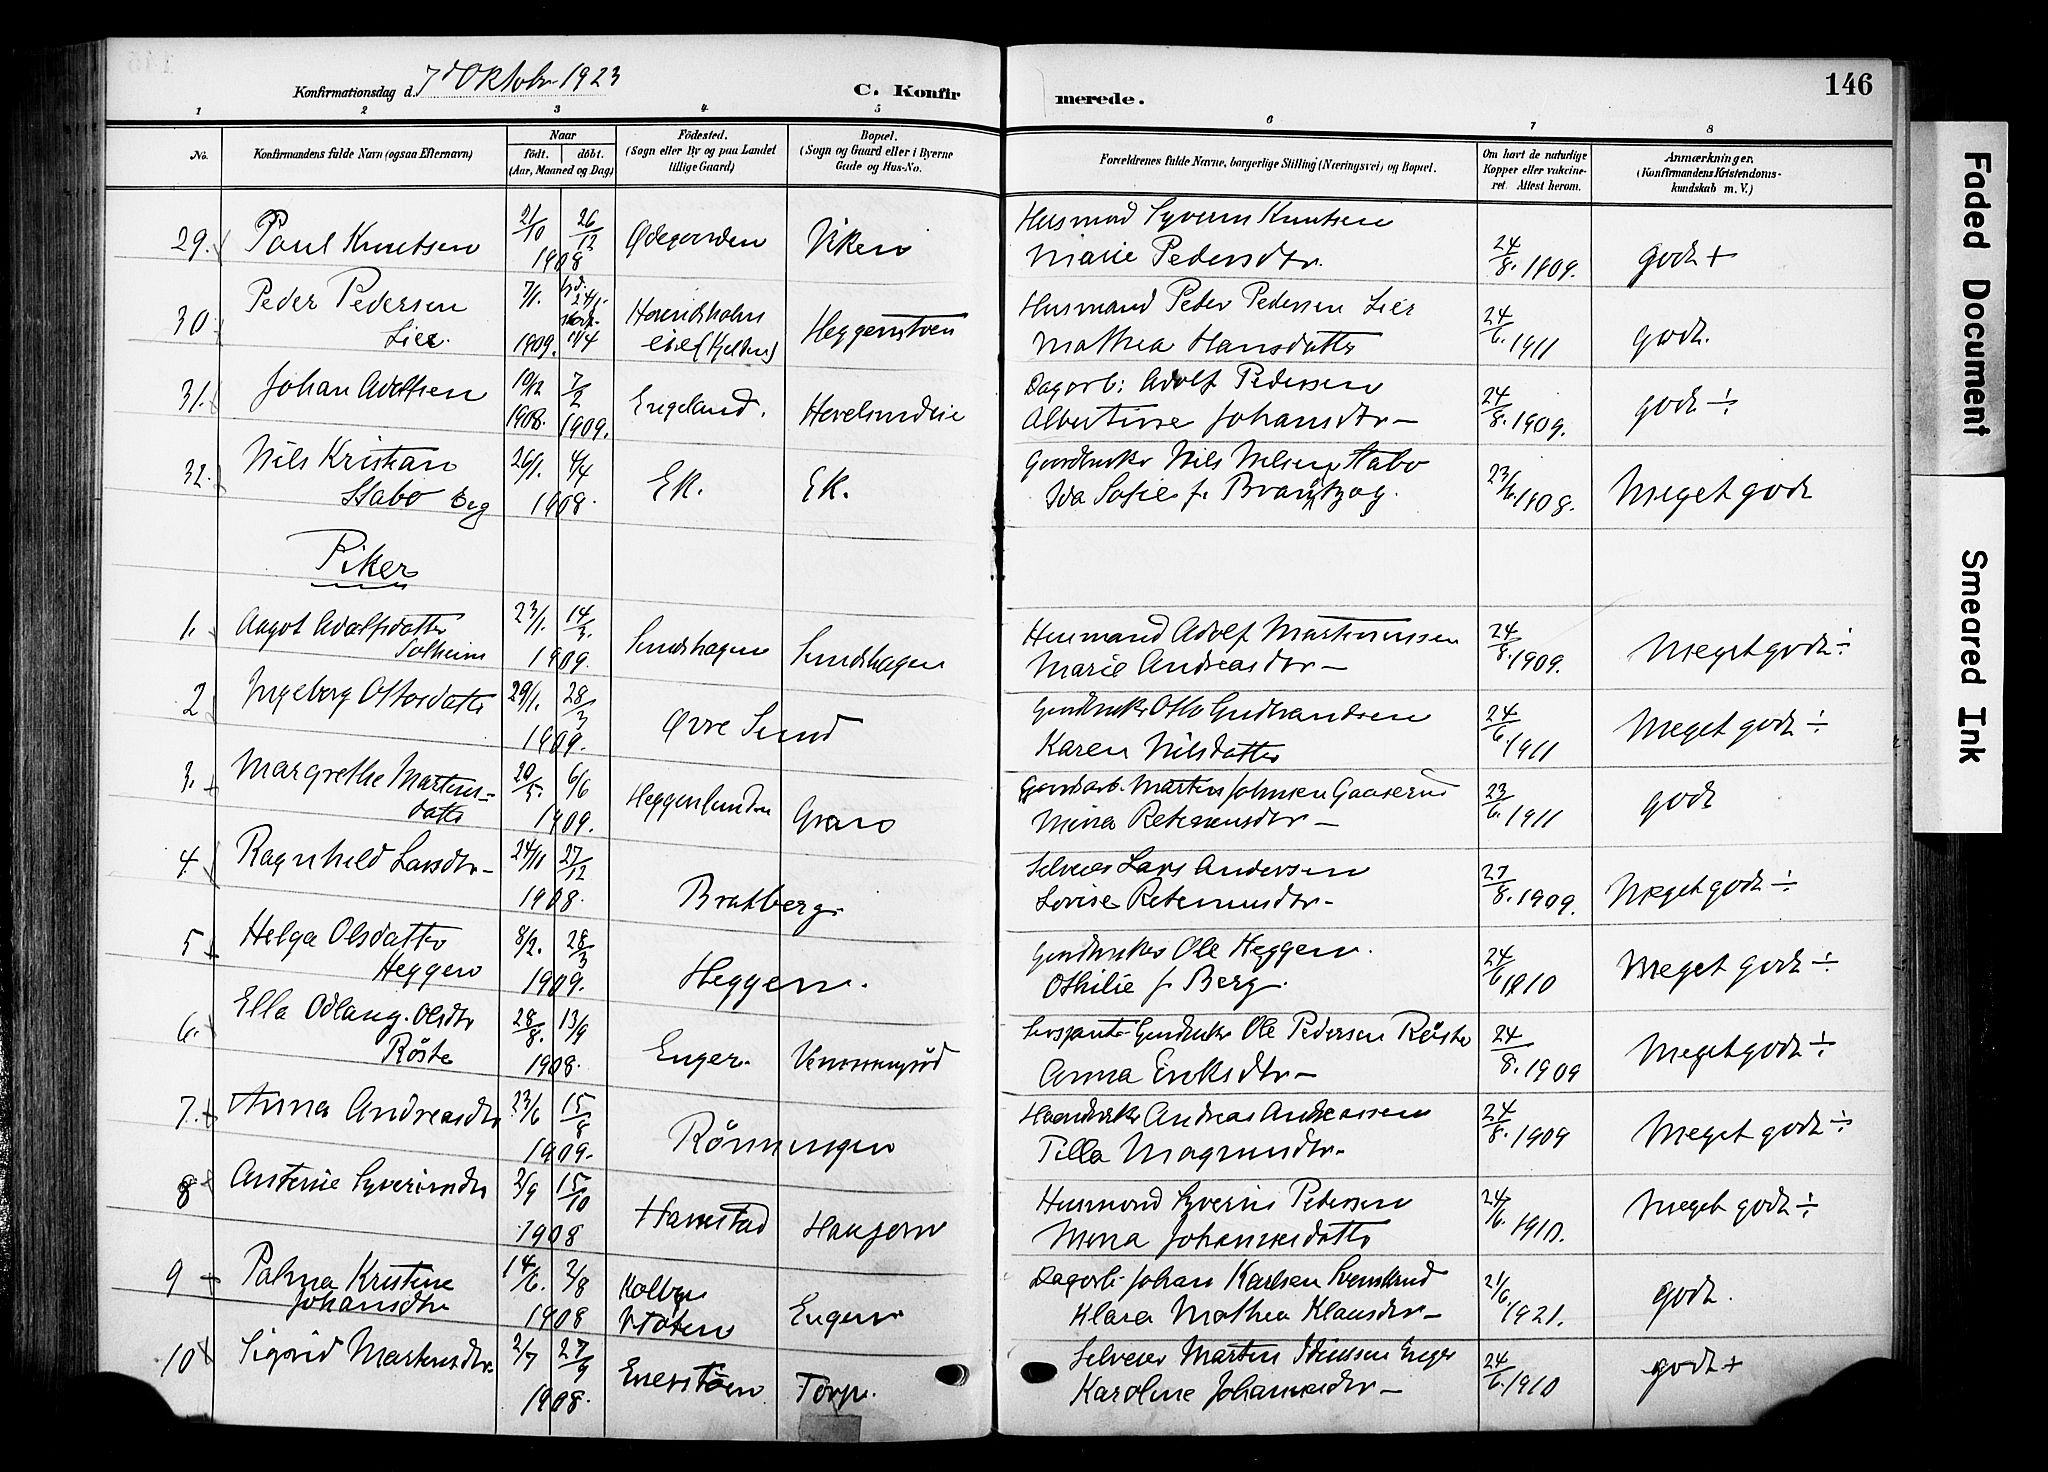 Konfirmationsdag d. 7d Oktobr 1923
C. Konfirmerede.
146
1 2 3 4 5 6 7 8
No.
Konfirmandens fulde Navn (ogsaa Efternavn)
Naar
födt. döbt.
(Aar, Maaned og Dag)
Födested.
(Sogn eller By og paa Landet
tillige Gaard)
Bopæl.
(Sogn og Gaard eller i Byerne
Gade og Hus-No.
Forældrenes fulde Navne, borgerlige Stilling (Næringsvei) og Bopæl.
Om havt de naturlige
Kopper eller vakcine-
ret. Attest herom.
Anmærkninger.
(Konfirmandens Kristendoms-
kundskab m. V.)
29. Paul Knutsen 21/10 26/12 1908 Ødegaarden Viken
Husmand Syverin Knutsen
Marie Pedersdtr. 24/8. 1909. godt +
30. Peder Pedersen
Lier. 7/1. 1909. 24/1. 11/4 Heggenstøen
Husmand Peder Pedersen Lier
Mathea Hansdatter 24/6. 1911 godt.
31. Johan Adolfsen 10/12 1908. 7/2 1909. Engeland. Hovelsrudeie
Dagarb: Adolf Pedersen
Albertine Johansdtr - 24/8. 1909. godt ÷
32. Nils Kristian
Stabo Eeg 26/1. 4/4 1908. Ek. Ek.
Gaardbruker Nils Nilsen Stabo
Ida Sofie f. 23/6. 1908. Meget godt
Piker
1. Aagot Adolfsdatter
Solheim 23/1. 14/3. 1909. Sundhagen Sundhagen
Husmand Adolf Martinussen
Marie Andreasdtr - 24/8. 1909. Meget godt ÷
2 Ingeborg Ottosdatter 29/1. 28/3 1909. Øvre Sund
Gaardbruker Otto Gudbrandsen
Karen Nilsdatter 24/6. 1911 Meget godt ÷
3. Margrethe Martins-
datter 20/5. 6/6 1909. Heggenlunden
Gaardarb. Martin Johnsen Gaaserud
Mina 23/6. 1911 godt
4. Ragnhild Larsdtr - 24/11 27/12 1908. Bratberg.
Selveier Lars Andersen
Lovise 27/8. 1909. Meget godt ÷
5 Helga Olsdatter
Heggen 8/2. 28/3 1909. Heggen.
Gaardbruker Ole Heggen.
Othilie f. Berg. 24/6 1910 Meget godt ÷
6. Ella Odlaug. Olsdtr
Røste 28/8. 13/9 1908. Enger.
Gaardbruker Ole Pedersen Røste
Anna Eriksdtr - 24/8. 1909 Meget godt ÷
7. Anna Andreasdtr 23/6 15/8 1909. Rønningen
Haandverker Andreas Andreassen
Tilla Magnusdtr - 24/8. 1909 Meget godt ÷
8 Antenie Syverinsdtr 2/9 15/10 1908 Hamstad
Husmand Syverin Pedersen
Mina Johannesdatter 24/6. 1910. Meget godt ÷
9 Palma Kristine
Johansdtr 14/6. 2/8 1908 Kolbu
V Toten Engen
Dagarb. Johan Karlsen
Klara Mathea Klausdtr - 21/6. 1921. godt.
10 Sigrid Martinsdtr. 2/7 27/9 1908. Enerstøen Torp.
Selveier Martin Enger
Karoline Johannesdtr - 24/6. 1910 godt +
Faded Document
Smeared Ink